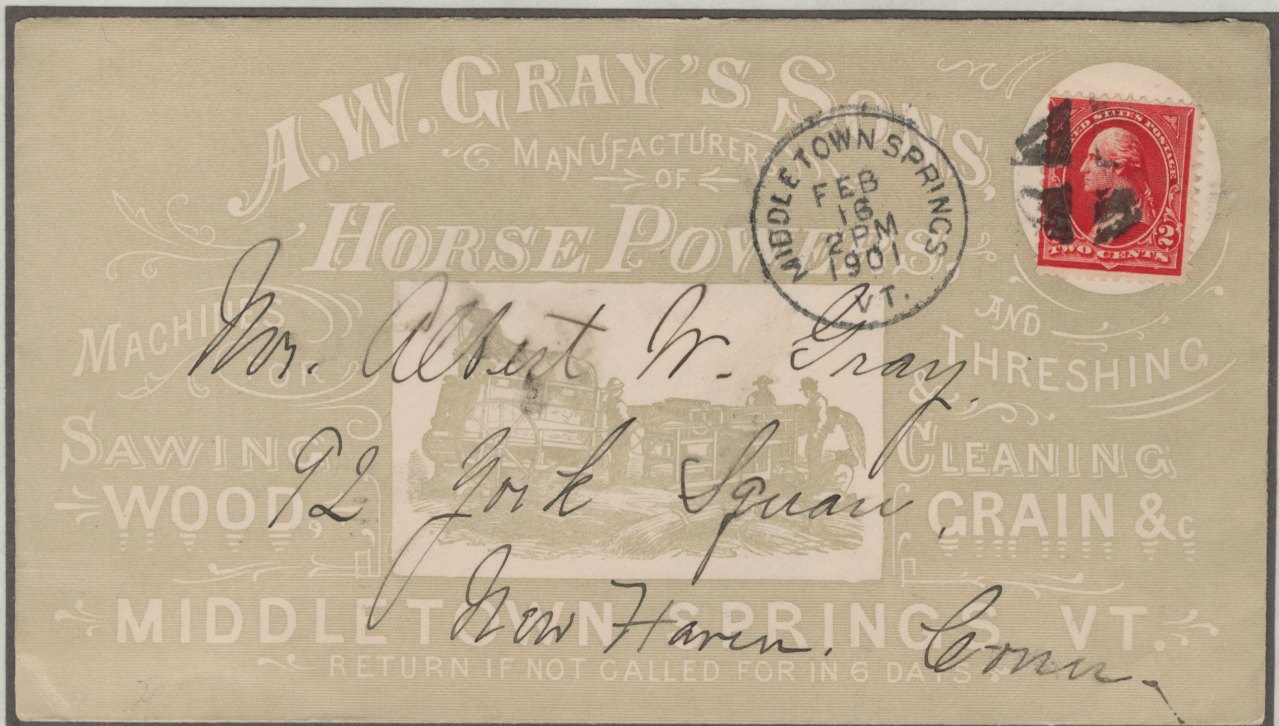 A.W. GRAY'S SONS,
MANUFACTURER
OF
HORSE POWERS
MACHINES
FOR
SAWING
WOOD,
AND
THRESHING
&
CLEANING
GRAIN &c
MIDDLETOWN SPRINGS VT.
RETURN IF NOT CALLED FOR IN 6 DAYS
MIDDLETOWN SPRINGS
FEB
16
2 PM
1901
VT.
UNITED STATES POSTAGE
2
TWO CENTS
Mr. Albert W. Gray.
92 York Square,
New Haven.
Conn.